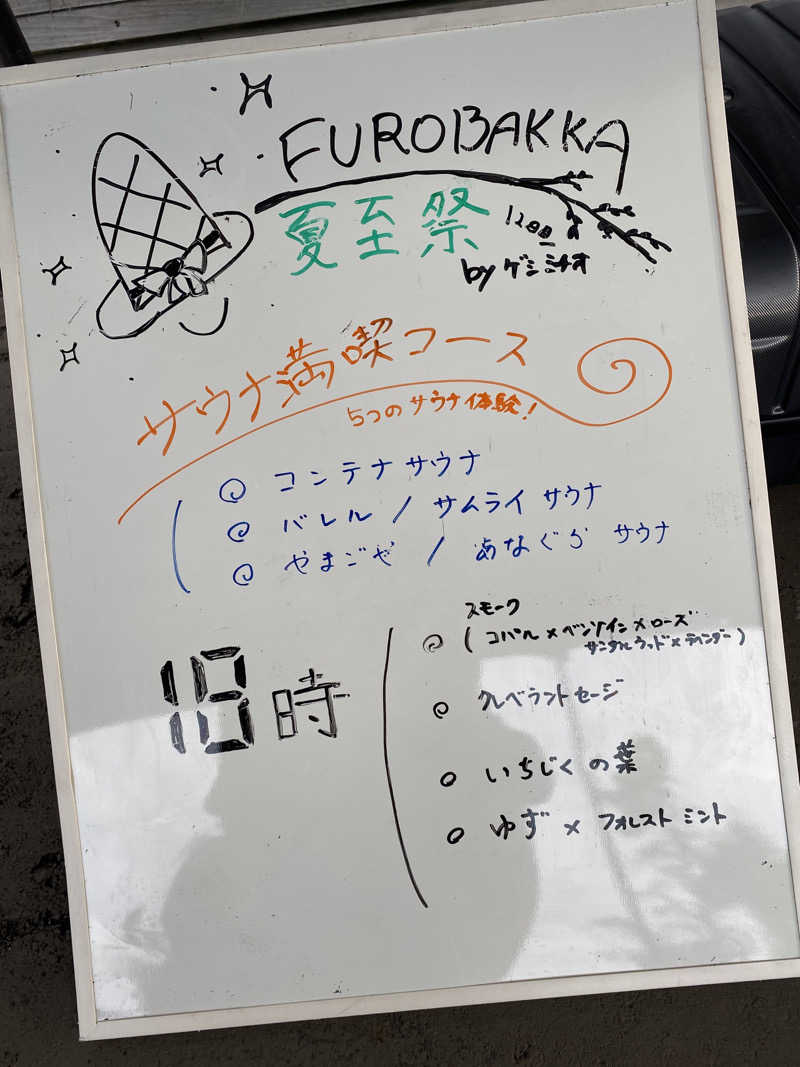 FUROBAKKA
夏至祭
by ゲシミチオ
サウナ満喫コース
5つのサウナ体験!
コンテナサウナ
バレル / サムライサウナ
やまごや / あなぐらサウナ
18時
スモーク
(コパル×ベンゾイン×ローズ
サンダルウッド×ラベンダー)
クレベラントセージ
いちじくの葉
ゆず×フォレストミント